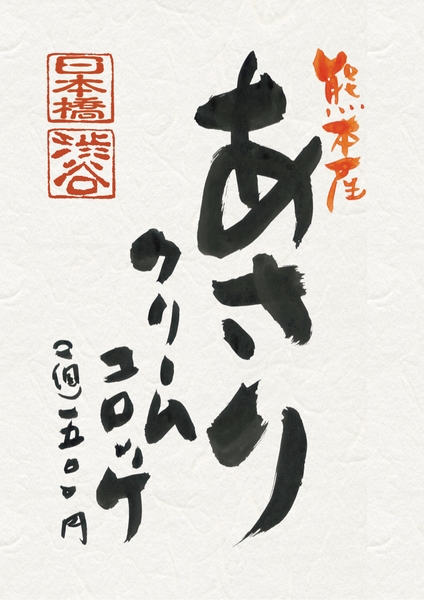 熊本産
あさり
クリーム
コロッケ
(二個)一五〇〇円
日本橋
渋谷